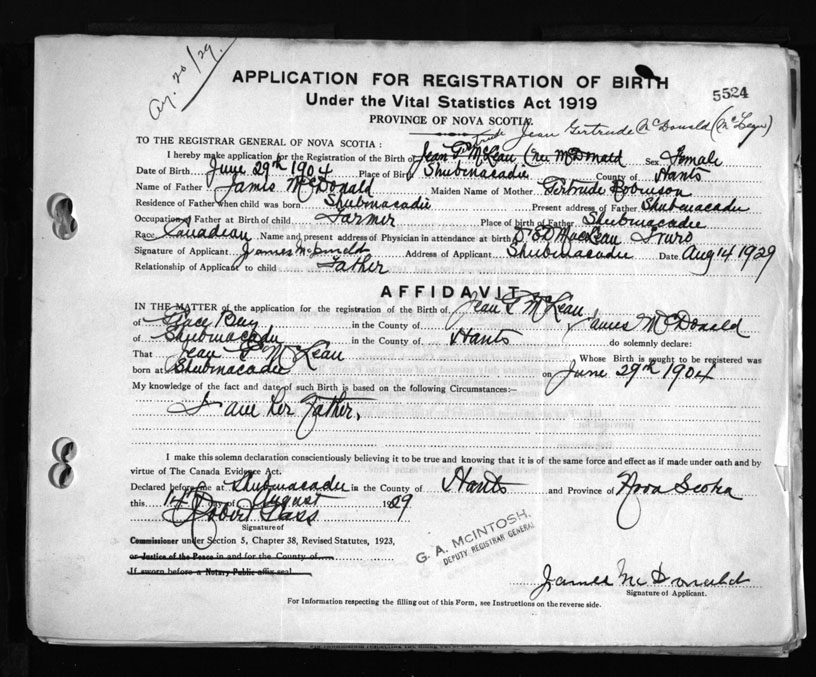 Aug. 20/29
APPLICATION FOR REGISTRATION OF BIRTH
5524
Under the Vital Statistics Act 1919
PROVINCE OF NOVA SCOTIA
Jean Gertrude McDonald (McLean)
TO THE REGISTRAR GENERAL OF NOVA SCOTIA :
I hereby make application for the Registration of the Birth of Jean G McLean (nee McDonald Sex Female
Date of Birth June 29th 1904 Place of Birth Shubinacadie County of Hants
Name of Father James McDonald Maiden Name of Mother Gertrude Robinson
Residence of Father when child was born Shubinacadie Present address of Father Shubinacadie
Occupation of Father at Birth of child Farmer Place of birth of Father Shubinacadie
Race Canadean Name and present address of Physician in attendance at birth MacLean Truro
Signature of Applicant James McDonald Address of Applicant Shubinacadie Date Aug 14 1929
Relationship of Applicant to child Father
AFFIDAVIT
IN THE MATTER of the application for the registration of the Birth of Jean G McLean
of Glace Bay in the County of James McDonald
of Shubinacadie in the County of Hants do solemnly declare:
That Jean G McLean Whose Birth is sought to be registered was
born at Shubinacadie on June 29th 1904
My knowledge of the fact and date of such Birth is based on the following Circumstances:—
I am her Father.
I make this solemn declaration conscientiously believing it to be true and knowing that it is of the same force and effect as if made under oath and by
virtue of The Canada Evidence Act.
Declared before me at Shubinacadie in the County of Hants and Province of Nova Scotia
this 14th day of August 1929
Robert
Signature of
Commissioner under Section 5, Chapter 38, Revised Statutes, 1923,
or Justice of the Peace in and for the County of
If sworn before a Notary Public affix seal
G. A. McINTOSH,
DEPUTY REGISTRAR GENERAL
James McDonald
Signature of Applicant.
For Information respecting the filling out of this Form, see Instructions on the reverse side.